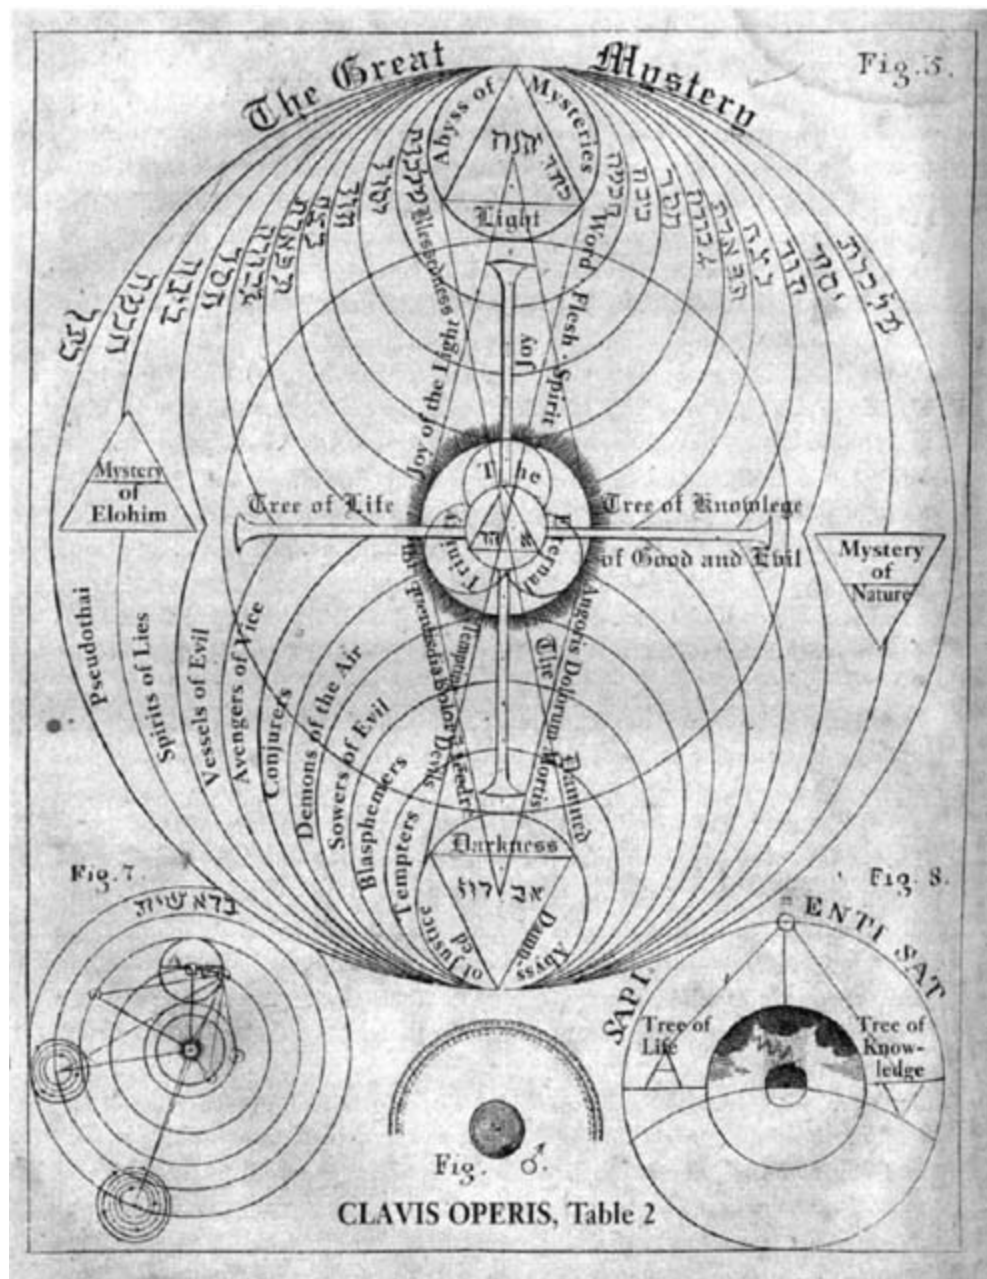 The Great Mystery
Fig. 5.
Abyss of Mysteries
יהוה
כתר
Light
Blessedness
Joy of the Light
Word · Flesh · Spirit
Joy
חכמה
בינה
הוד
חסד
Mystery
of
Elohim
Tree of Life
The Eternal Trinity
Tree of Knowlege
of Good and Evil
Mystery
of
Nature
Pseudothai
Spirits of Lies
Vessels of Evil
Avengers of Vice
Conjurers
Demons of the Air
Sowers of Evil
Blasphemers
Tempters
Devils
The Damned
Angoris Dollorum Mortis
Darkness
אבדון
Abyss of Justice
Damn-
ed
Fig. 7.
Fig. 8.
SAPI. ENTI SAT
Tree of
Life
Tree of
Know-
ledge
Fig. ♂.
CLAVIS OPERIS, Table 2